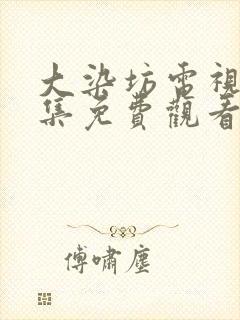 大染坊電視
集免費觀看
傅嘯塵